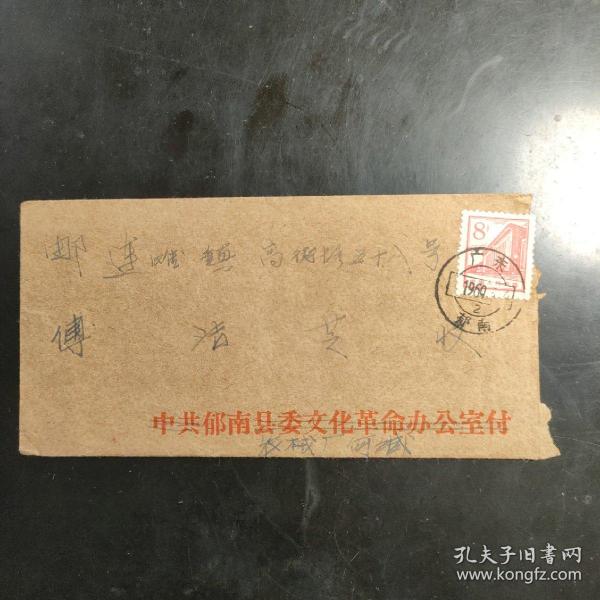 邮 连滩镇高街埗五十八号
8
广东
1969
2
郁南
傅 洁 芝 收
中共郁南县委文化革命办公室付
机械厂 可缄
孔夫子旧书网
www.kongfz.com